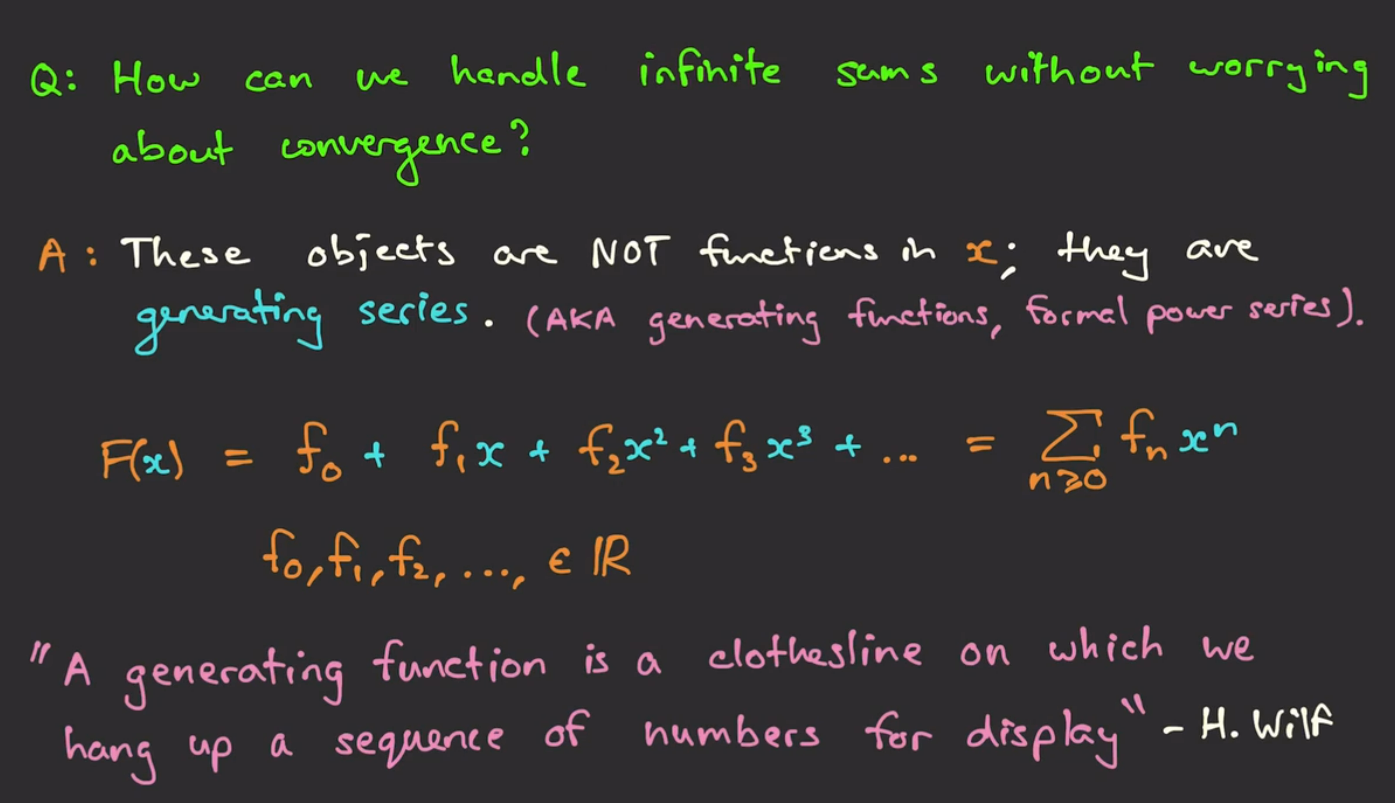 Q: How can we handle infinite sums without worrying
about convergence?
A: These objects are NOT functions in x; they are
generating series. (AKA generating functions, formal power series).
F(x) = f₀ + f₁x + f₂x² + f₃x³ + ... = Σ_{n≥0} fₙxⁿ
f₀, f₁, f₂, ..., ∈ ℝ
"A generating function is a clothesline on which we
hang up a sequence of numbers for display" - H. Wilf